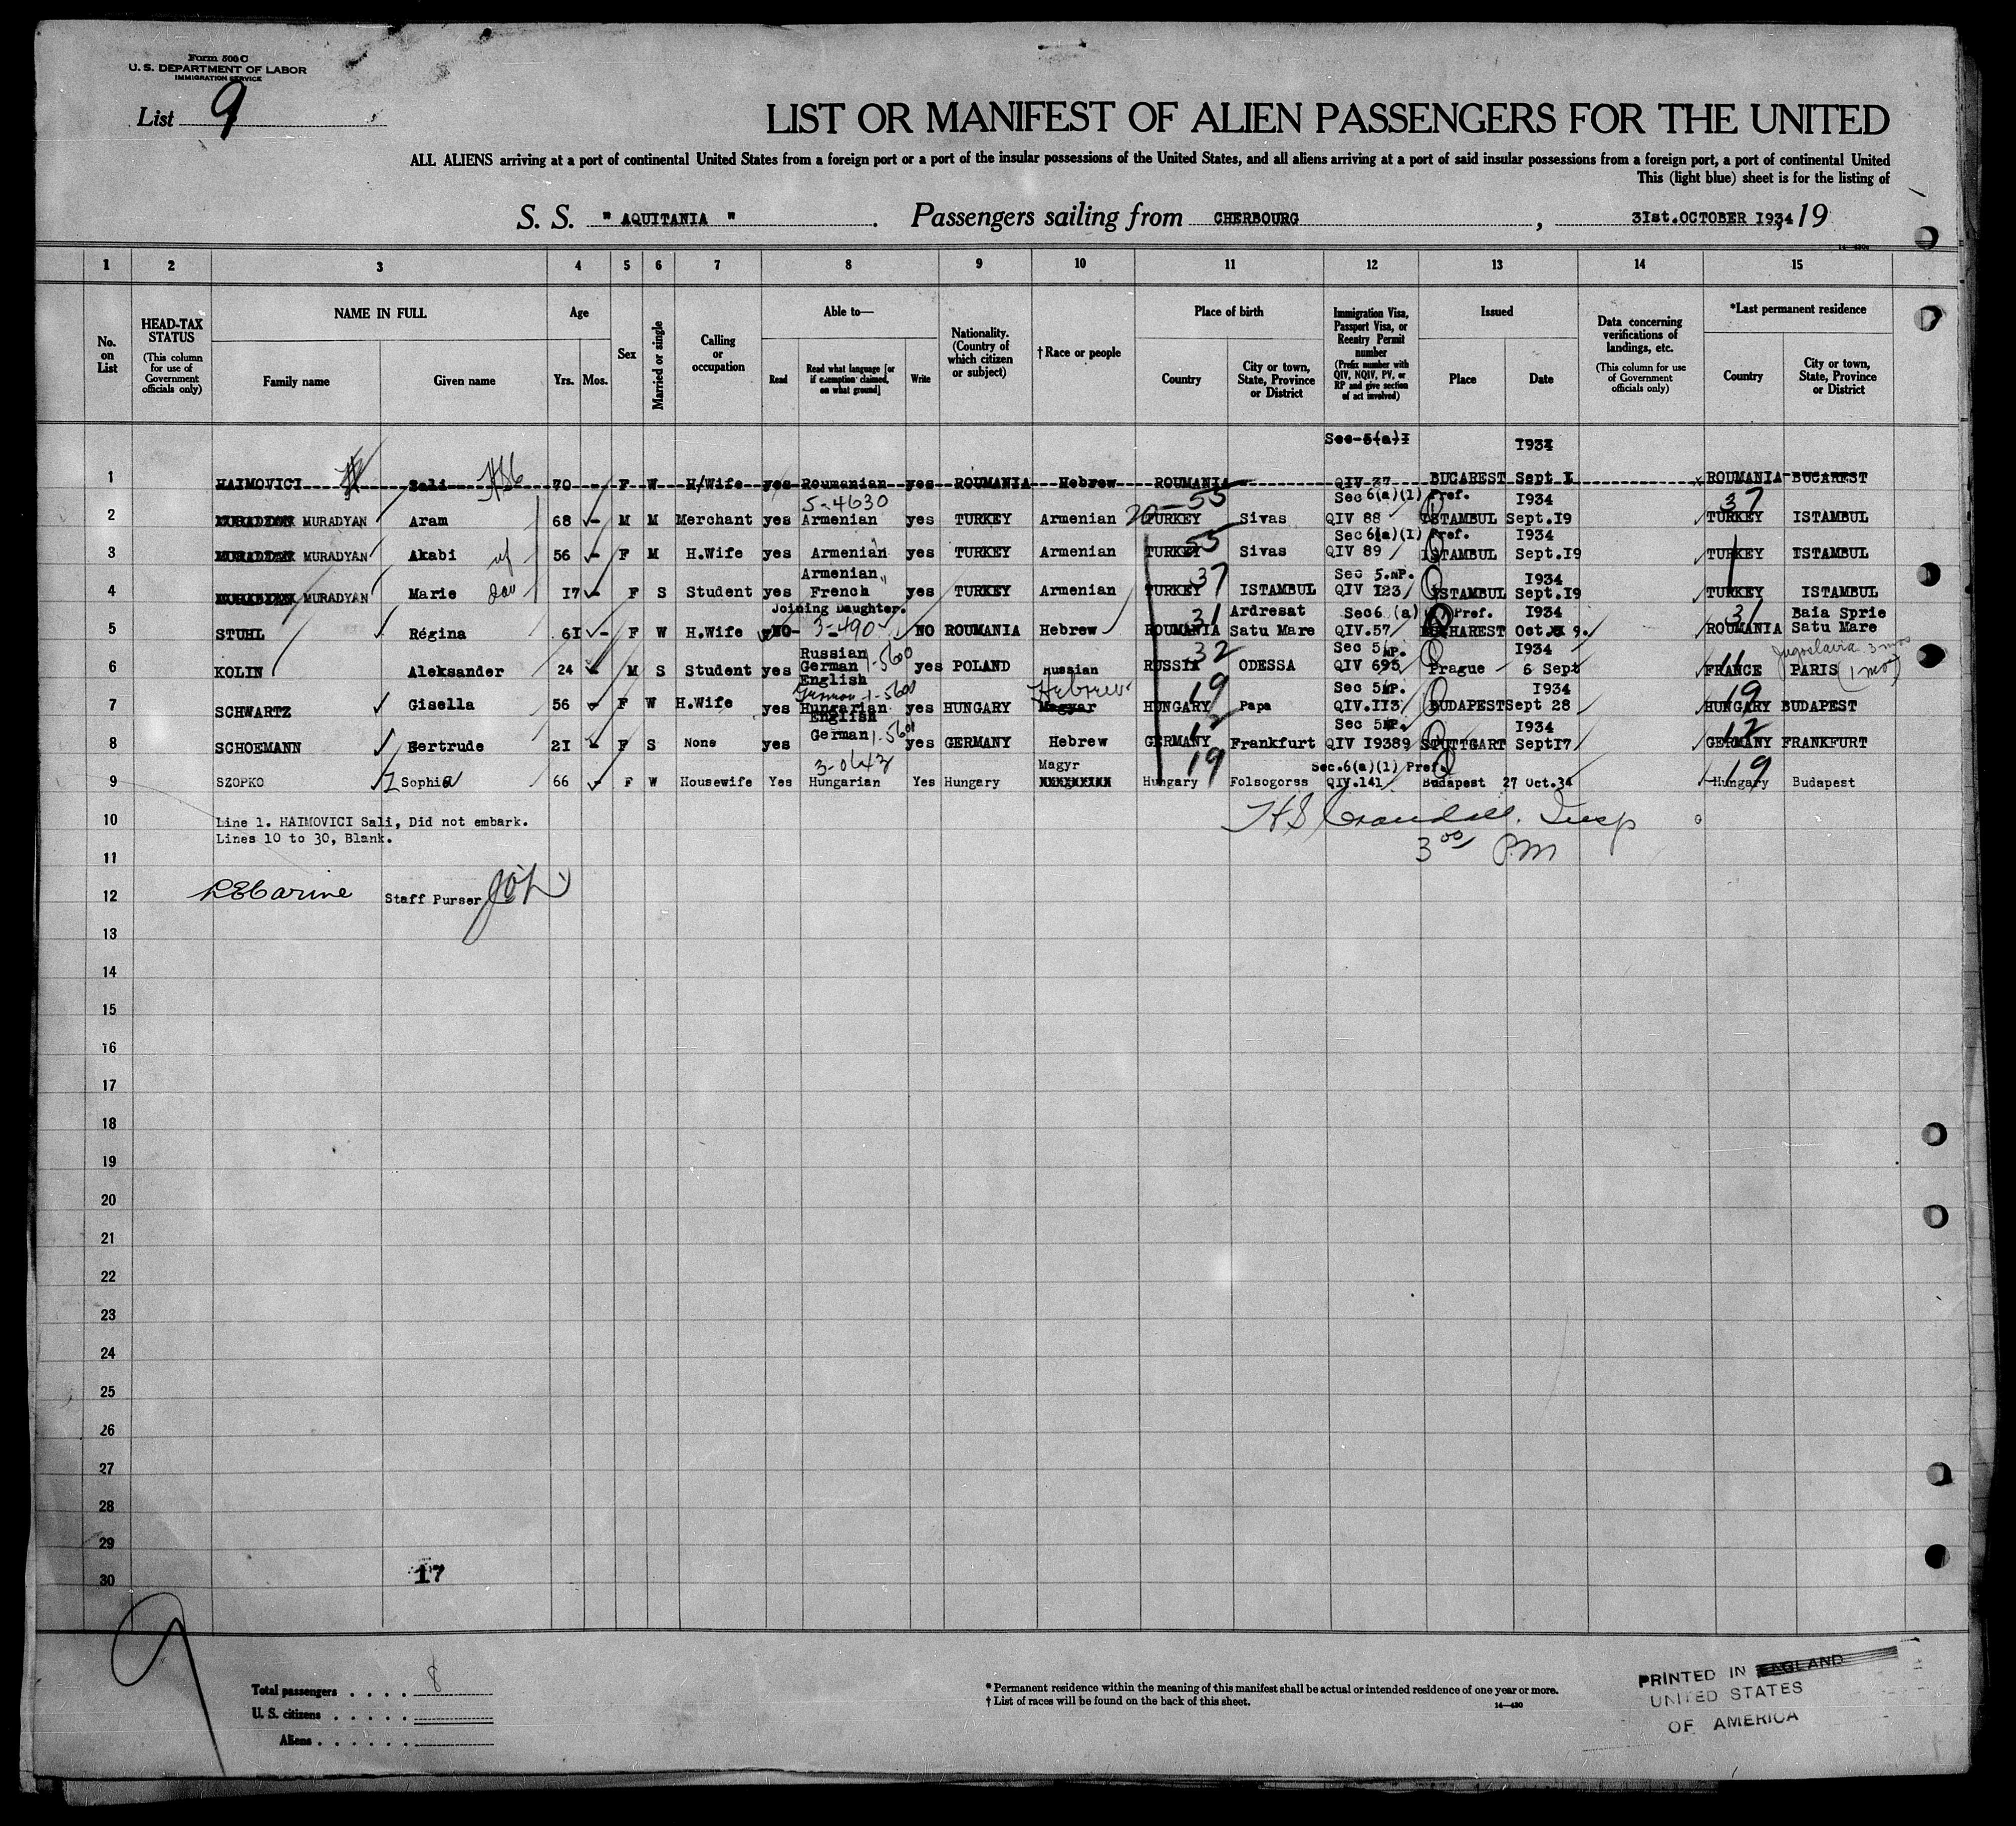 Form 500 C
U. S. DEPARTMENT OF LABOR
IMMIGRATION SERVICE
List 9
LIST OR MANIFEST OF ALIEN PASSENGERS FOR THE UNITED
ALL ALIENS arriving at a port of continental United States from a foreign port or a port of the insular possessions of the United States, and all aliens arriving at a port of said insular possessions from a foreign port, a port of continental United
This (light blue) sheet is for the listing of
S. S. " AQUITANIA " . Passengers sailing from CHERBOURG , 3Ist.OCTOBER I934, 19
1 2 3 4 5 6 7 8 9 10 11 12 13 14 15
No. on List
HEAD-TAX STATUS (This column for use of Government officials only)
NAME IN FULL
Family name Given name
Age
Yrs. Mos.
Sex
Married or single
Calling or occupation
Able to—
Read Read what language [or if exemption claimed, on what ground] Write
Nationality. (Country of which citizen or subject)
†Race or people
Place of birth
Country City or town, State, Province or District
Immigration Visa, Passport Visa, or Reentry Permit number (Prefix number with QIV, NQIV, PV, or RP and give section of act involved)
Issued
Place Date
Data concerning verifications of landings, etc. (This column for use of Government officials only)
*Last permanent residence
Country City or town, State, Province or District
Sec-5(a)I I934
1 HAIMOVICI Sali 70 - F W H/Wife yes Roumanian yes ROUMANIA Hebrew ROUMANIA QIV 37 BUCAREST Sept I ROUMANIA BUCAREST
5-4630 55 Sec 6(a)(1) Pref. I934 37
2 MURADYAN Aram 68 - M M Merchant yes Armenian yes TURKEY Armenian TURKEY Sivas QIV 88 ISTAMBUL Sept.I9 TURKEY ISTAMBUL
55 Sec 6(a)(1) Pref. I934
3 MURADYAN Akabi wf 56 - F M H.Wife yes Armenian yes TURKEY Armenian TURKEY Sivas QIV 89 ISTAMBUL Sept.I9 TURKEY ISTAMBUL
Armenian 37 Sec 5.NP. I934
4 MURADYAN Marie dau I7 - F S Student yes French yes TURKEY Armenian TURKEY ISTAMBUL QIV I23 ISTAMBUL Sept.I9 TURKEY ISTAMBUL
Joining Daughter. 3-490 31 Ardresat Sec6 (a) Pref. I934 31 Baia Sprie
5 STUHL Régina 6I - F W H.Wife NO NO ROUMANIA Hebrew ROUMANIA Satu Mare QIV.57 Oct. 9. ROUMANIA Satu Mare
Russian 1-5600 32 Sec 5 NP. I934 11 Jugoslavia 3 mos
6 KOLIN Aleksander 24 - M S Student yes German English yes POLAND Russian RUSSIA ODESSA QIV 695 Prague 6 Sept FRANCE PARIS (1 mo)
German 1-5600 Hebrew 19 Sec 5 NP. I934 19
7 SCHWARTZ Gisella 56 - F W H.Wife yes Hungarian yes HUNGARY Magyar HUNGARY Papa QIV.II3 BUDAPEST Sept 28 HUNGARY BUDAPEST
English 1-5600 12 Sec 5 NP. I934 12
8 SCHOEMANN Gertrude 2I - F S None yes German yes GERMANY Hebrew GERMANY Frankfurt QIV I9389 STUTTGART SeptI7 GERMANY FRANKFURT
3-0643 Magyr 19 Sec.6(a)(1) Pref. 19
9 SZOPKO Sophia 66 - F W Housewife Yes Hungarian Yes Hungary Hungary Folsogorss QIV.141 Budapest 27 Oct.34 Hungary Budapest
10 Line 1. HAIMOVICI Sali, Did not embark.
Lines 10 to 30, Blank.
HS Crandall. Insp
3 00 P.M
11
12 Staff Purser
13
14
15
16
17
18
19
20
21
22
23
24
25
26
27
28
29
30
17
9
Total passengers . . . . 8
U. S. citizens . . . . .
Aliens . . . . . .
* Permanent residence within the meaning of this manifest shall be actual or intended residence of one year or more.
† List of races will be found on the back of this sheet.
14—430
PRINTED IN ENGLAND
UNITED STATES
OF AMERICA